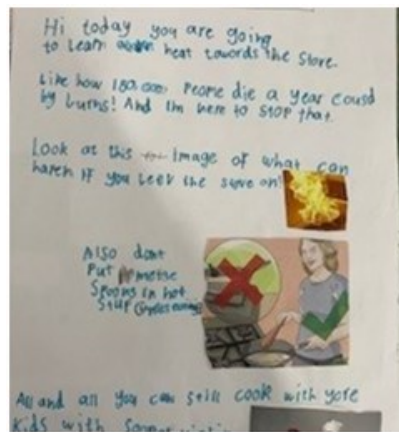 Hi today you are going
to learn heat towords the stove.
Like how 180,000 People die a year cousd
by burns! And Im here to STOP that.
Look at this Image of what can
haren IF you leev the stove on!
Also dont
Put
Spoons in hot
Stuf
All and all you can still cook with yore
Kids with